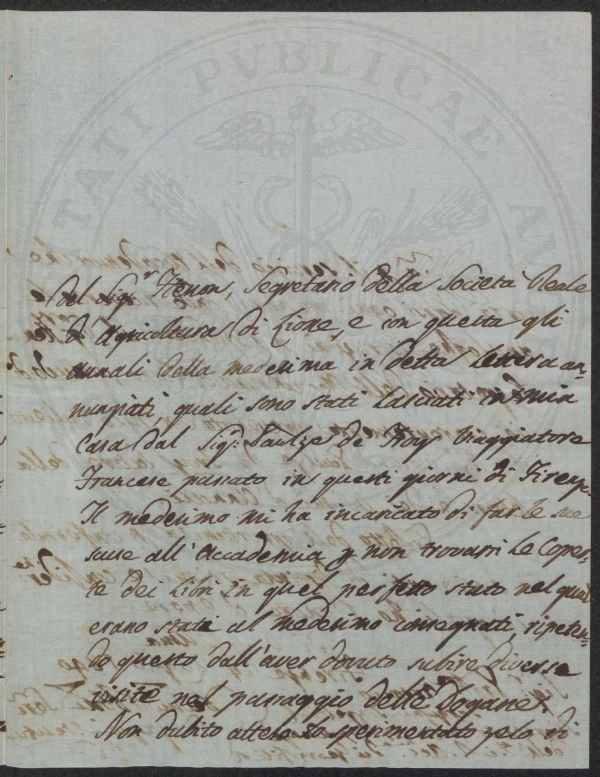 TATI PVBLICAE AV
del Sig.r Henon, Segretario della Società Reale
di Agricoltura di Lione, e con questa gli
annali della medesima in detta Lettera an-
nunziati, quali sono stati lasciati in mia
Casa dal Sig. de Viaggiatore
Francese passato in questi giorni di Firenze.
Il medesimo mi ha incaricato di far le sue
scuse all'Accademia p non trovarsi le Coper-
te dei Libri in quel perfetto stato nel quale
erano state al medesimo consegnati, ripeten-
do questo dall'aver dovuto subire diverse
visite nel passaggio delle Dogane.
Non dubito atteso lo sperimentato zelo di